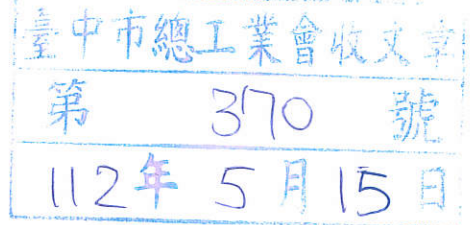 臺中市總工業會收文章
第 370 號
112年 5月 15日